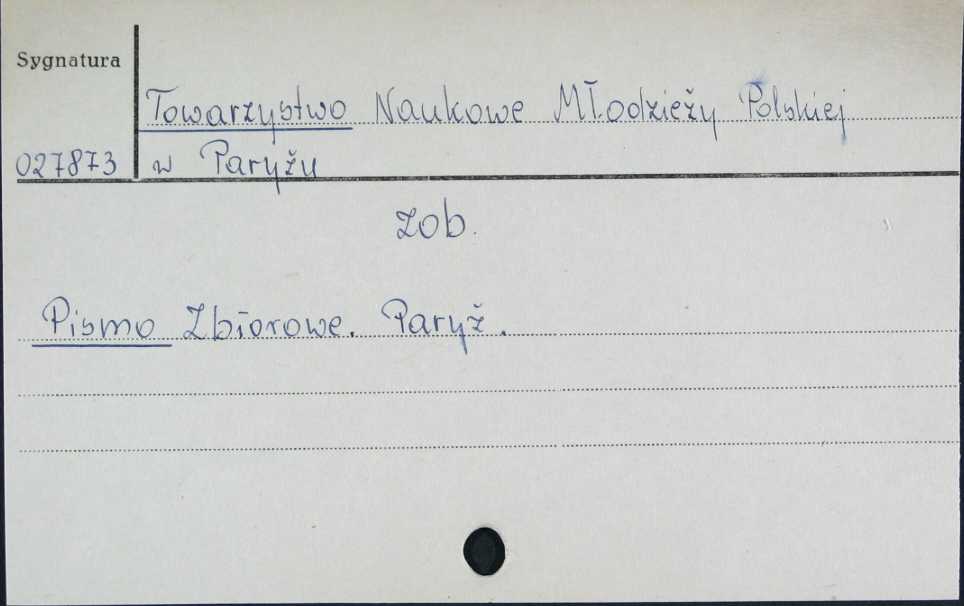 Sygnatura
Towarzystwo Naukowe Młodzieży Polskiej
027873 w Paryżu
zob.
Pismo Zbiorowe. Paryż.